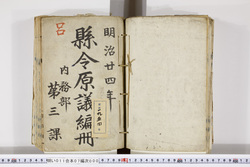 明治廿四年
縣令原議編冊
内務部
第三課
呂